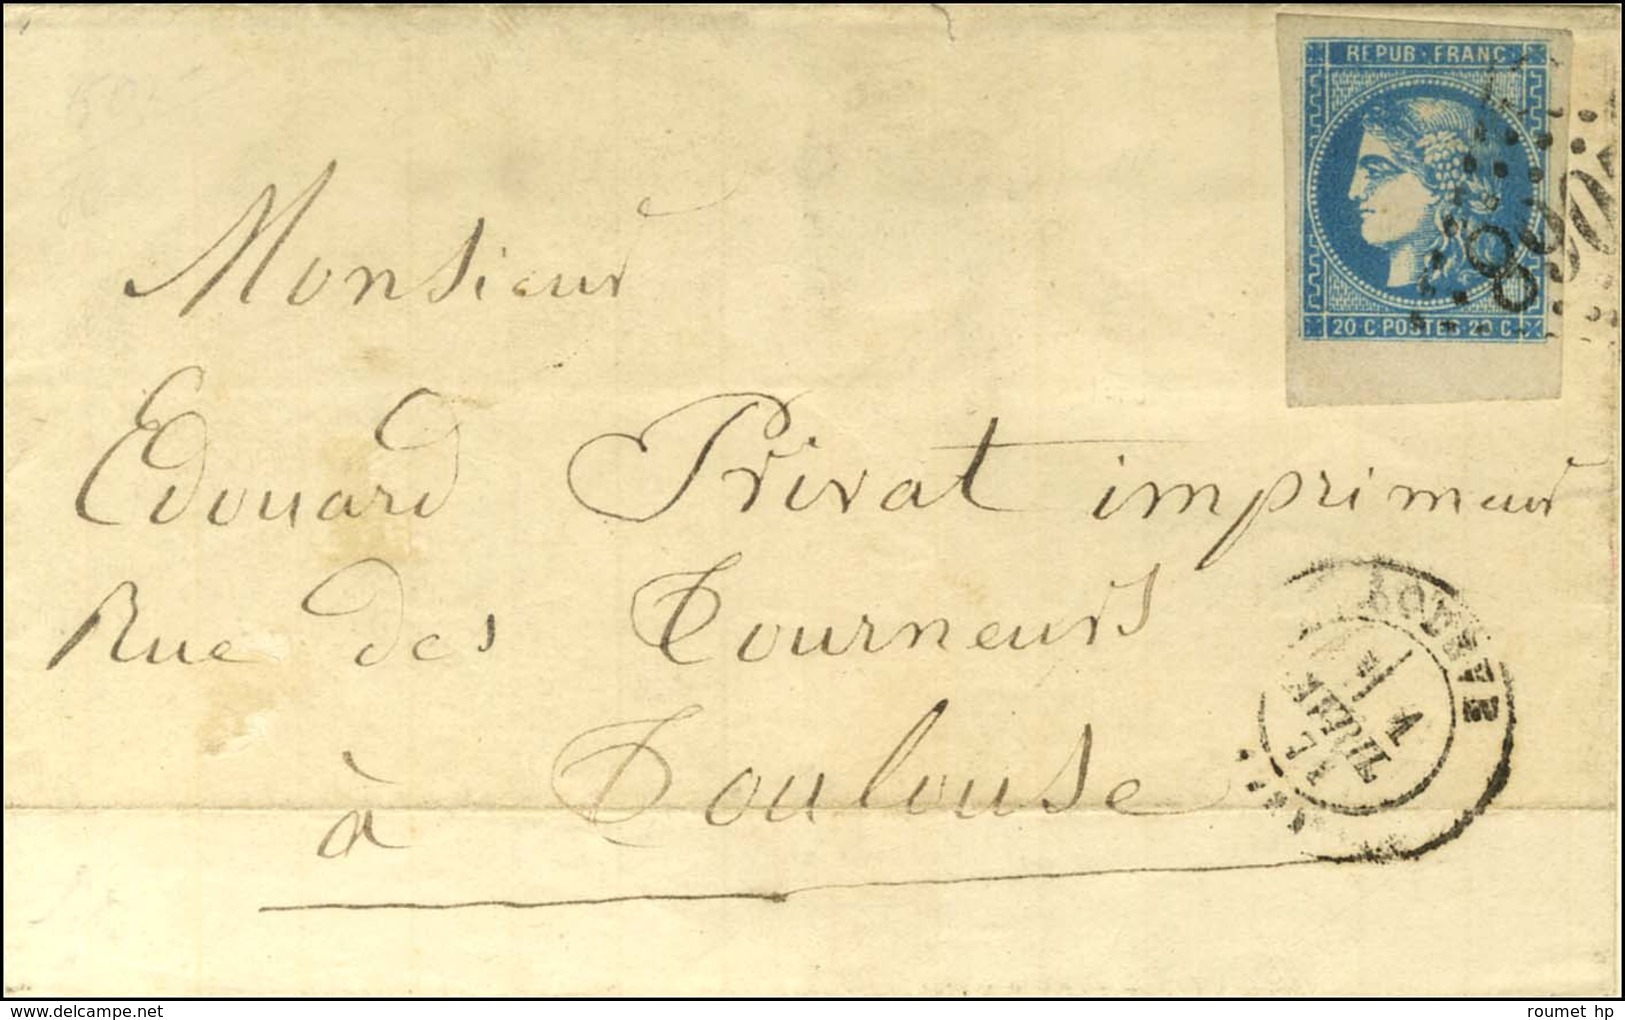 REPUB · FRANC
20 C POSTES 20 C
Monsieur
Edouard Privat imprimeur
Rue des Tourneurs
à Toulouse
1
AVRIL
71
roumet hp